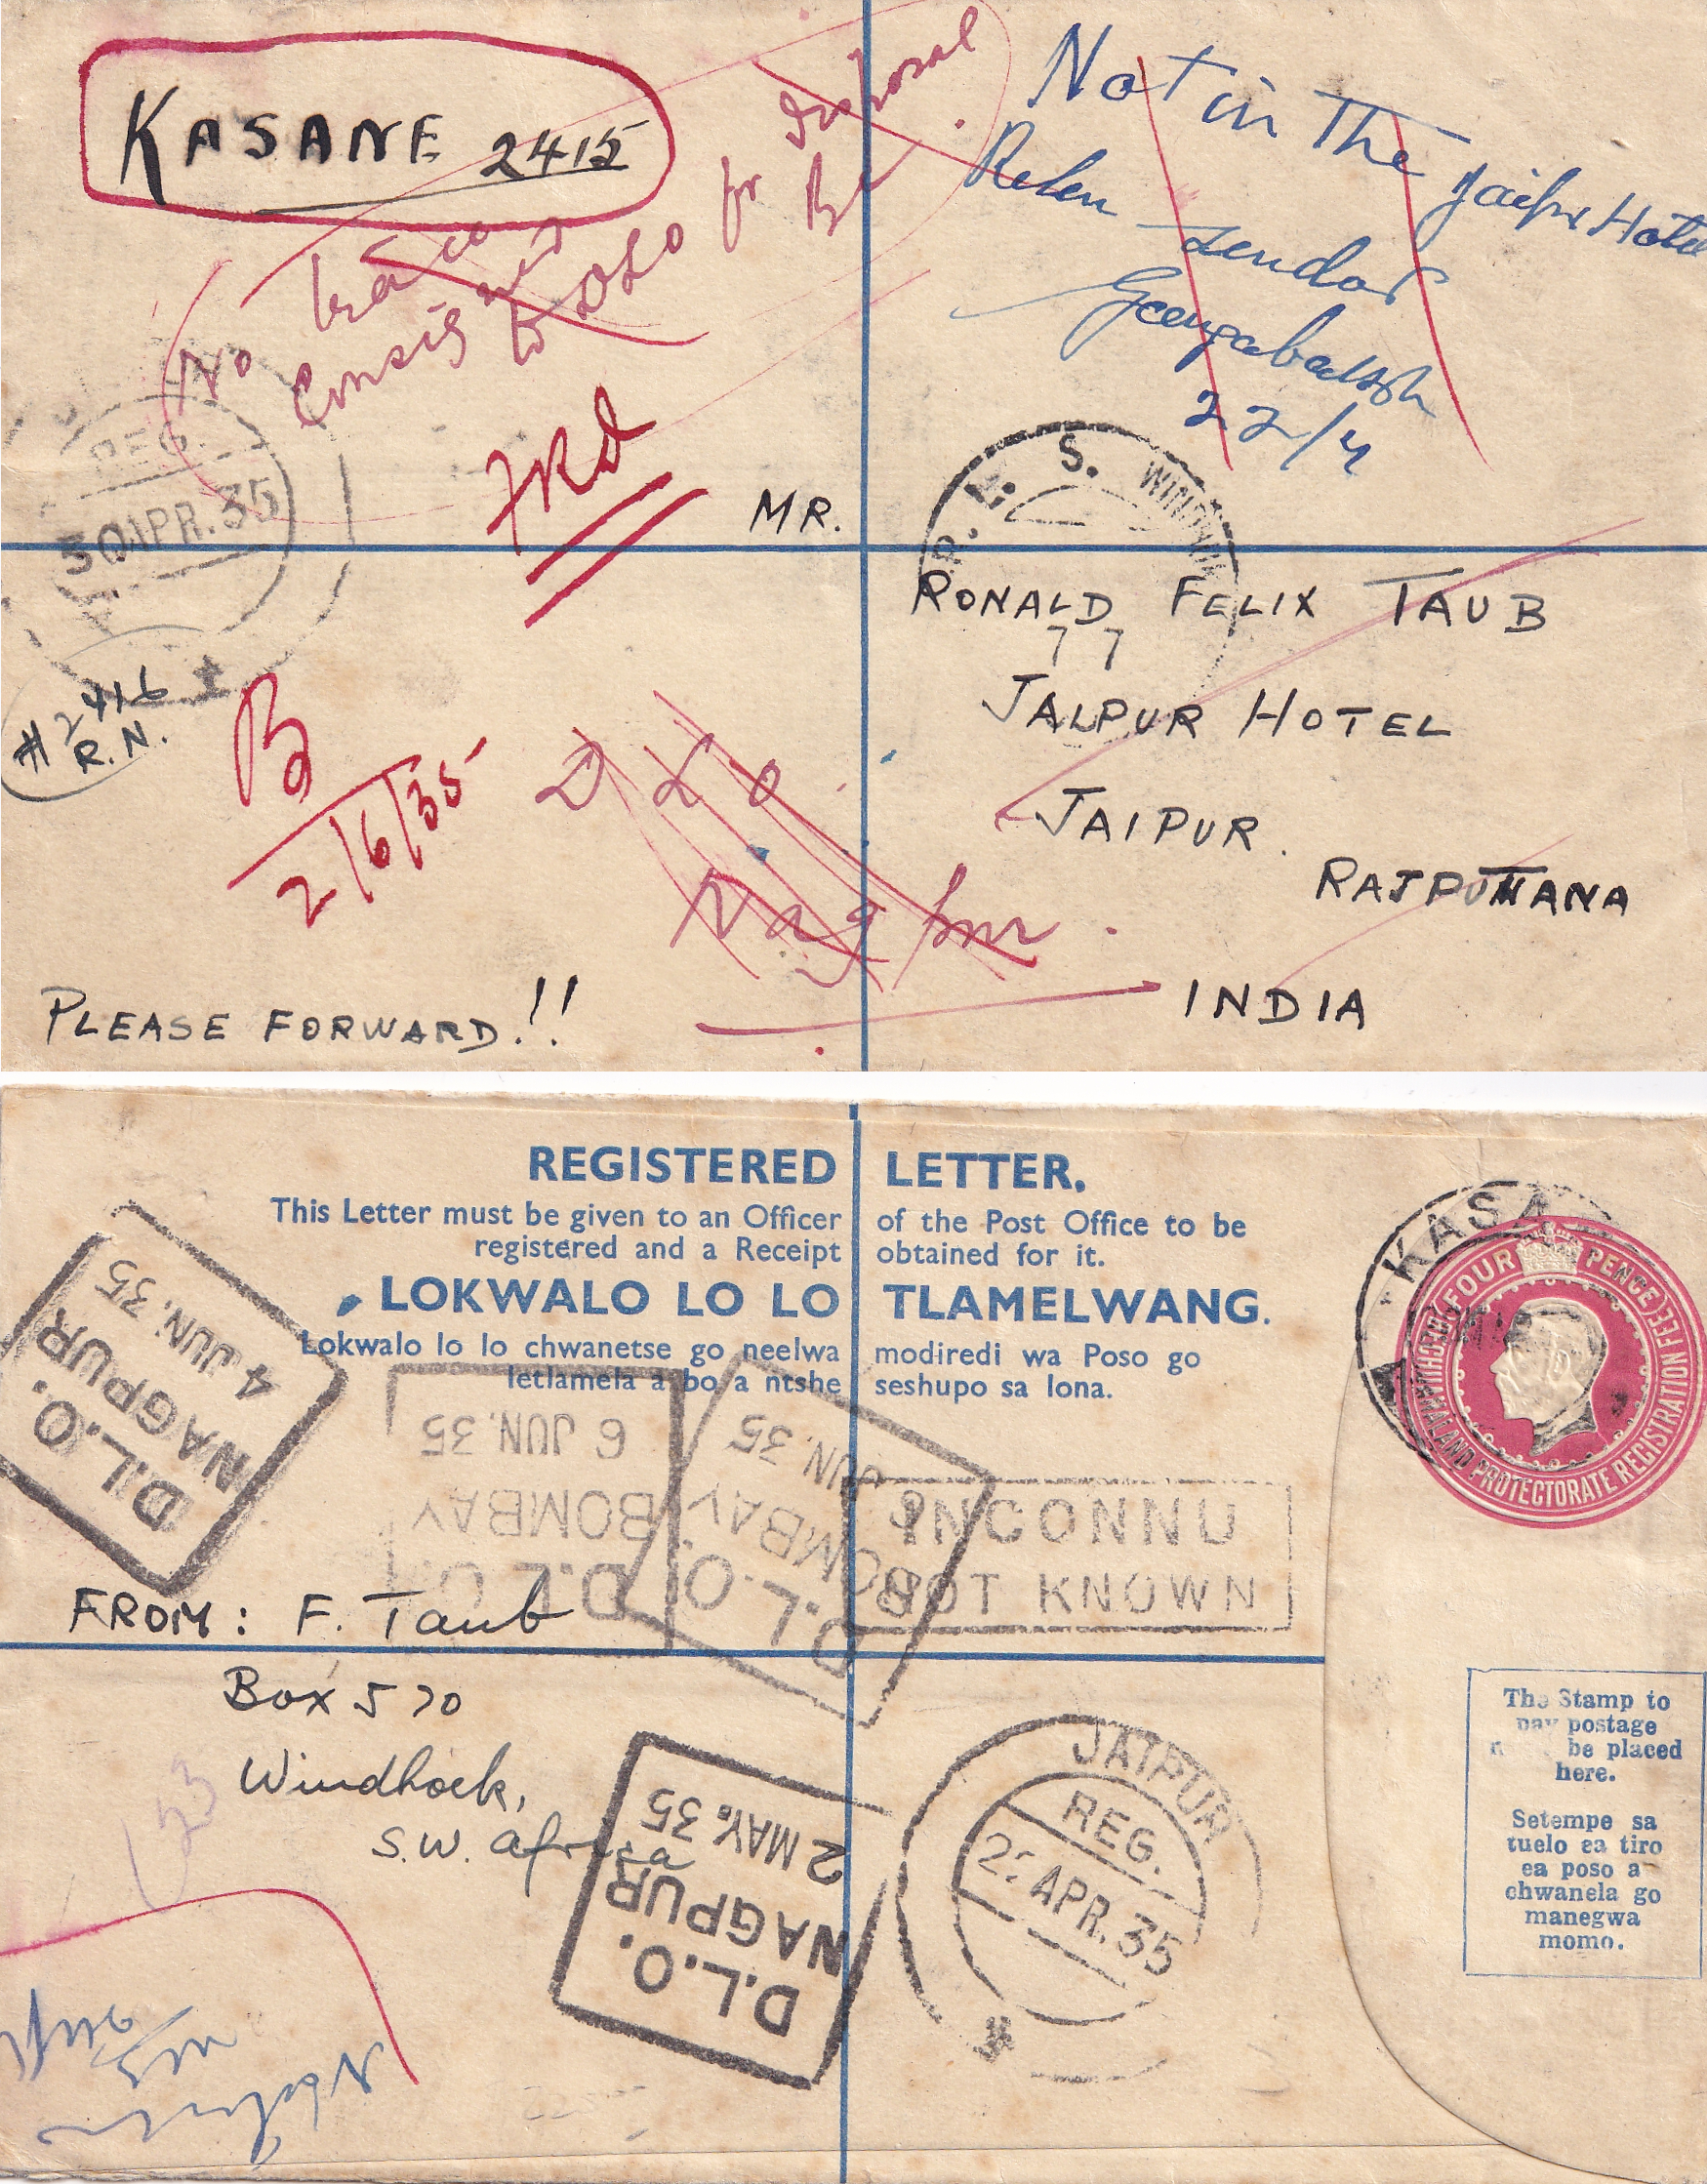 KASANE 2415
No trace
Consigned
to DLO for disposal
Not in The Jaipur Hotel
sendor
22/4
Frd
REG.
30 APR. 35
#2416
R.N.
R. L. S. WINDHUK
MR.
RONALD FELIX TAUB
77
JALPUR HOTEL
JAIPUR.
RAJPUTANA
INDIA
B
2/6/35
D L O
Nagpur.
PLEASE FORWARD!!
REGISTERED LETTER.
This Letter must be given to an Officer of the Post Office to be
registered and a Receipt obtained for it.
LOKWALO LO LO TLAMELWANG.
Lokwalo lo lo chwanetse go neelwa modiredi wa Poso go
letlamela a bo a ntshe seshupo sa lona.
KASA
FOUR PENCE
PROTECTORATE REGISTRATION FEE
D.L.O.
NAGPUR
4 JUN. 35
D.L.O.
BOMBAY
6 JUN. 35
D.L.O.
BOMBAY
JUN. 35
INCONNU
NOT KNOWN
FROM: F. Taub
Box 570
Windhoek,
S.W. Africa
D.L.O.
NAGPUR
2 MAY. 35
JAIPUR
REG.
APR. 35
The Stamp to
pay postage
be placed
here.
Setempe sa
tuelo ea tiro
ea poso a
chwanela go
manegwa
momo.